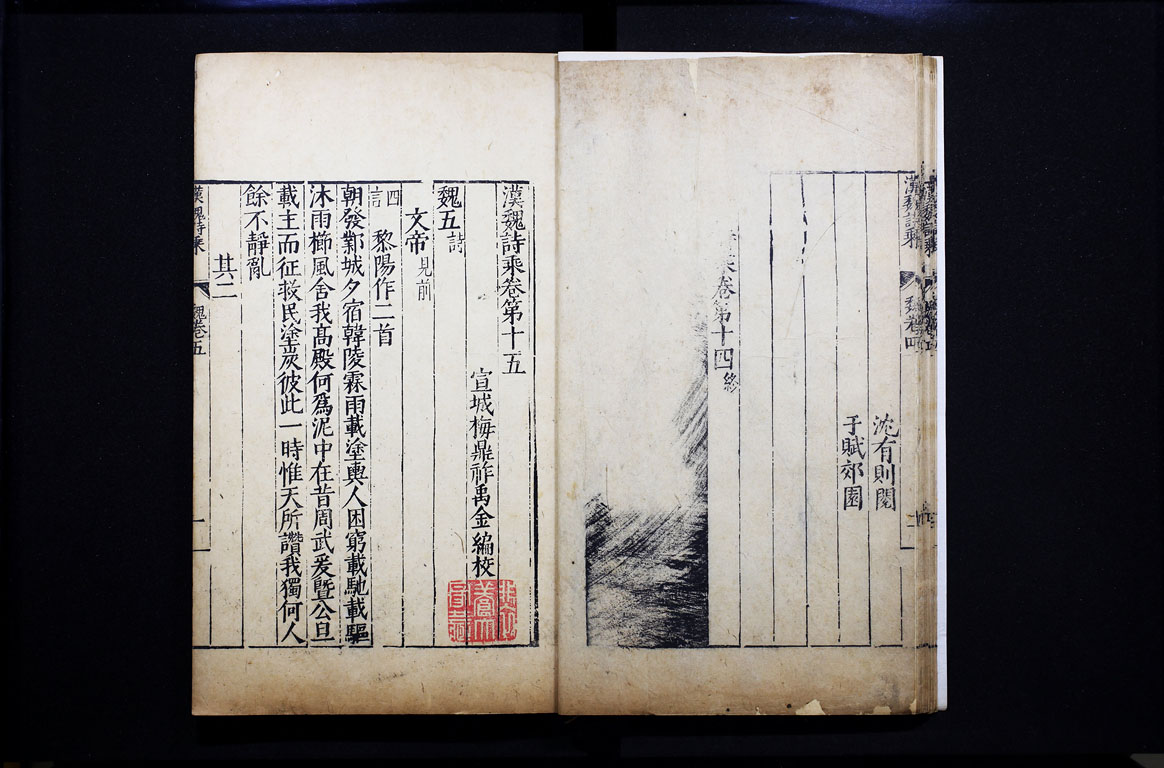 漢魏詩乘 魏卷四
沈有則閱
于賦郊園
乘卷第十四終
漢魏詩乘卷第十五
宣城梅鼎祚禹金編校
魏五詩
文帝見前
四言 黎陽作二首
朝發鄴城夕宿韓陵霖雨載塗輿人困窮載馳載驅
沐雨櫛風舍我高殿何爲泥中在昔周武爰曁公旦
載主而征救民塗炭彼此一時惟天所讚我獨何人
餘不靜亂
其二
漢魏詩乘 魏卷五 一